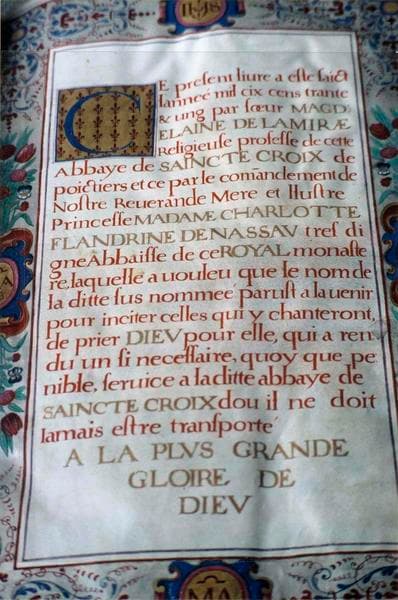 IHS
CE preſent liure a eſte faict
lanneé mil cix cens trante
& ung par ſœur MAGD
ELAINE DE LAMIRÆ
Religieuſe profeſſe de cette
Abbaye de SAINCTE CROIX de
poictiers et ce par le comãndement de
Noſtre Reuerande Mere et Iluſtre
Princeſſe MADAME CHARLOTTE
FLANDRINE DE NASSAV treſ di
gne Abbaiſſe de ce ROYAL monaſte
re, laquelle a uouleu que le nom de
la ditte ſus nommeé paruſt a la uenir
pour inciter celles qui y chanteront,
de prier DIEV pour elle, qui a ren
du un ſi neceſſaire, quoy que pe
nible, ſeruice a la ditte abbaye de
SAINCTE CROIX dou il ne doit
Iamais eſtre tranſporte
A LA PLVS GRANDE
GLOIRE DE
DIEV
MA